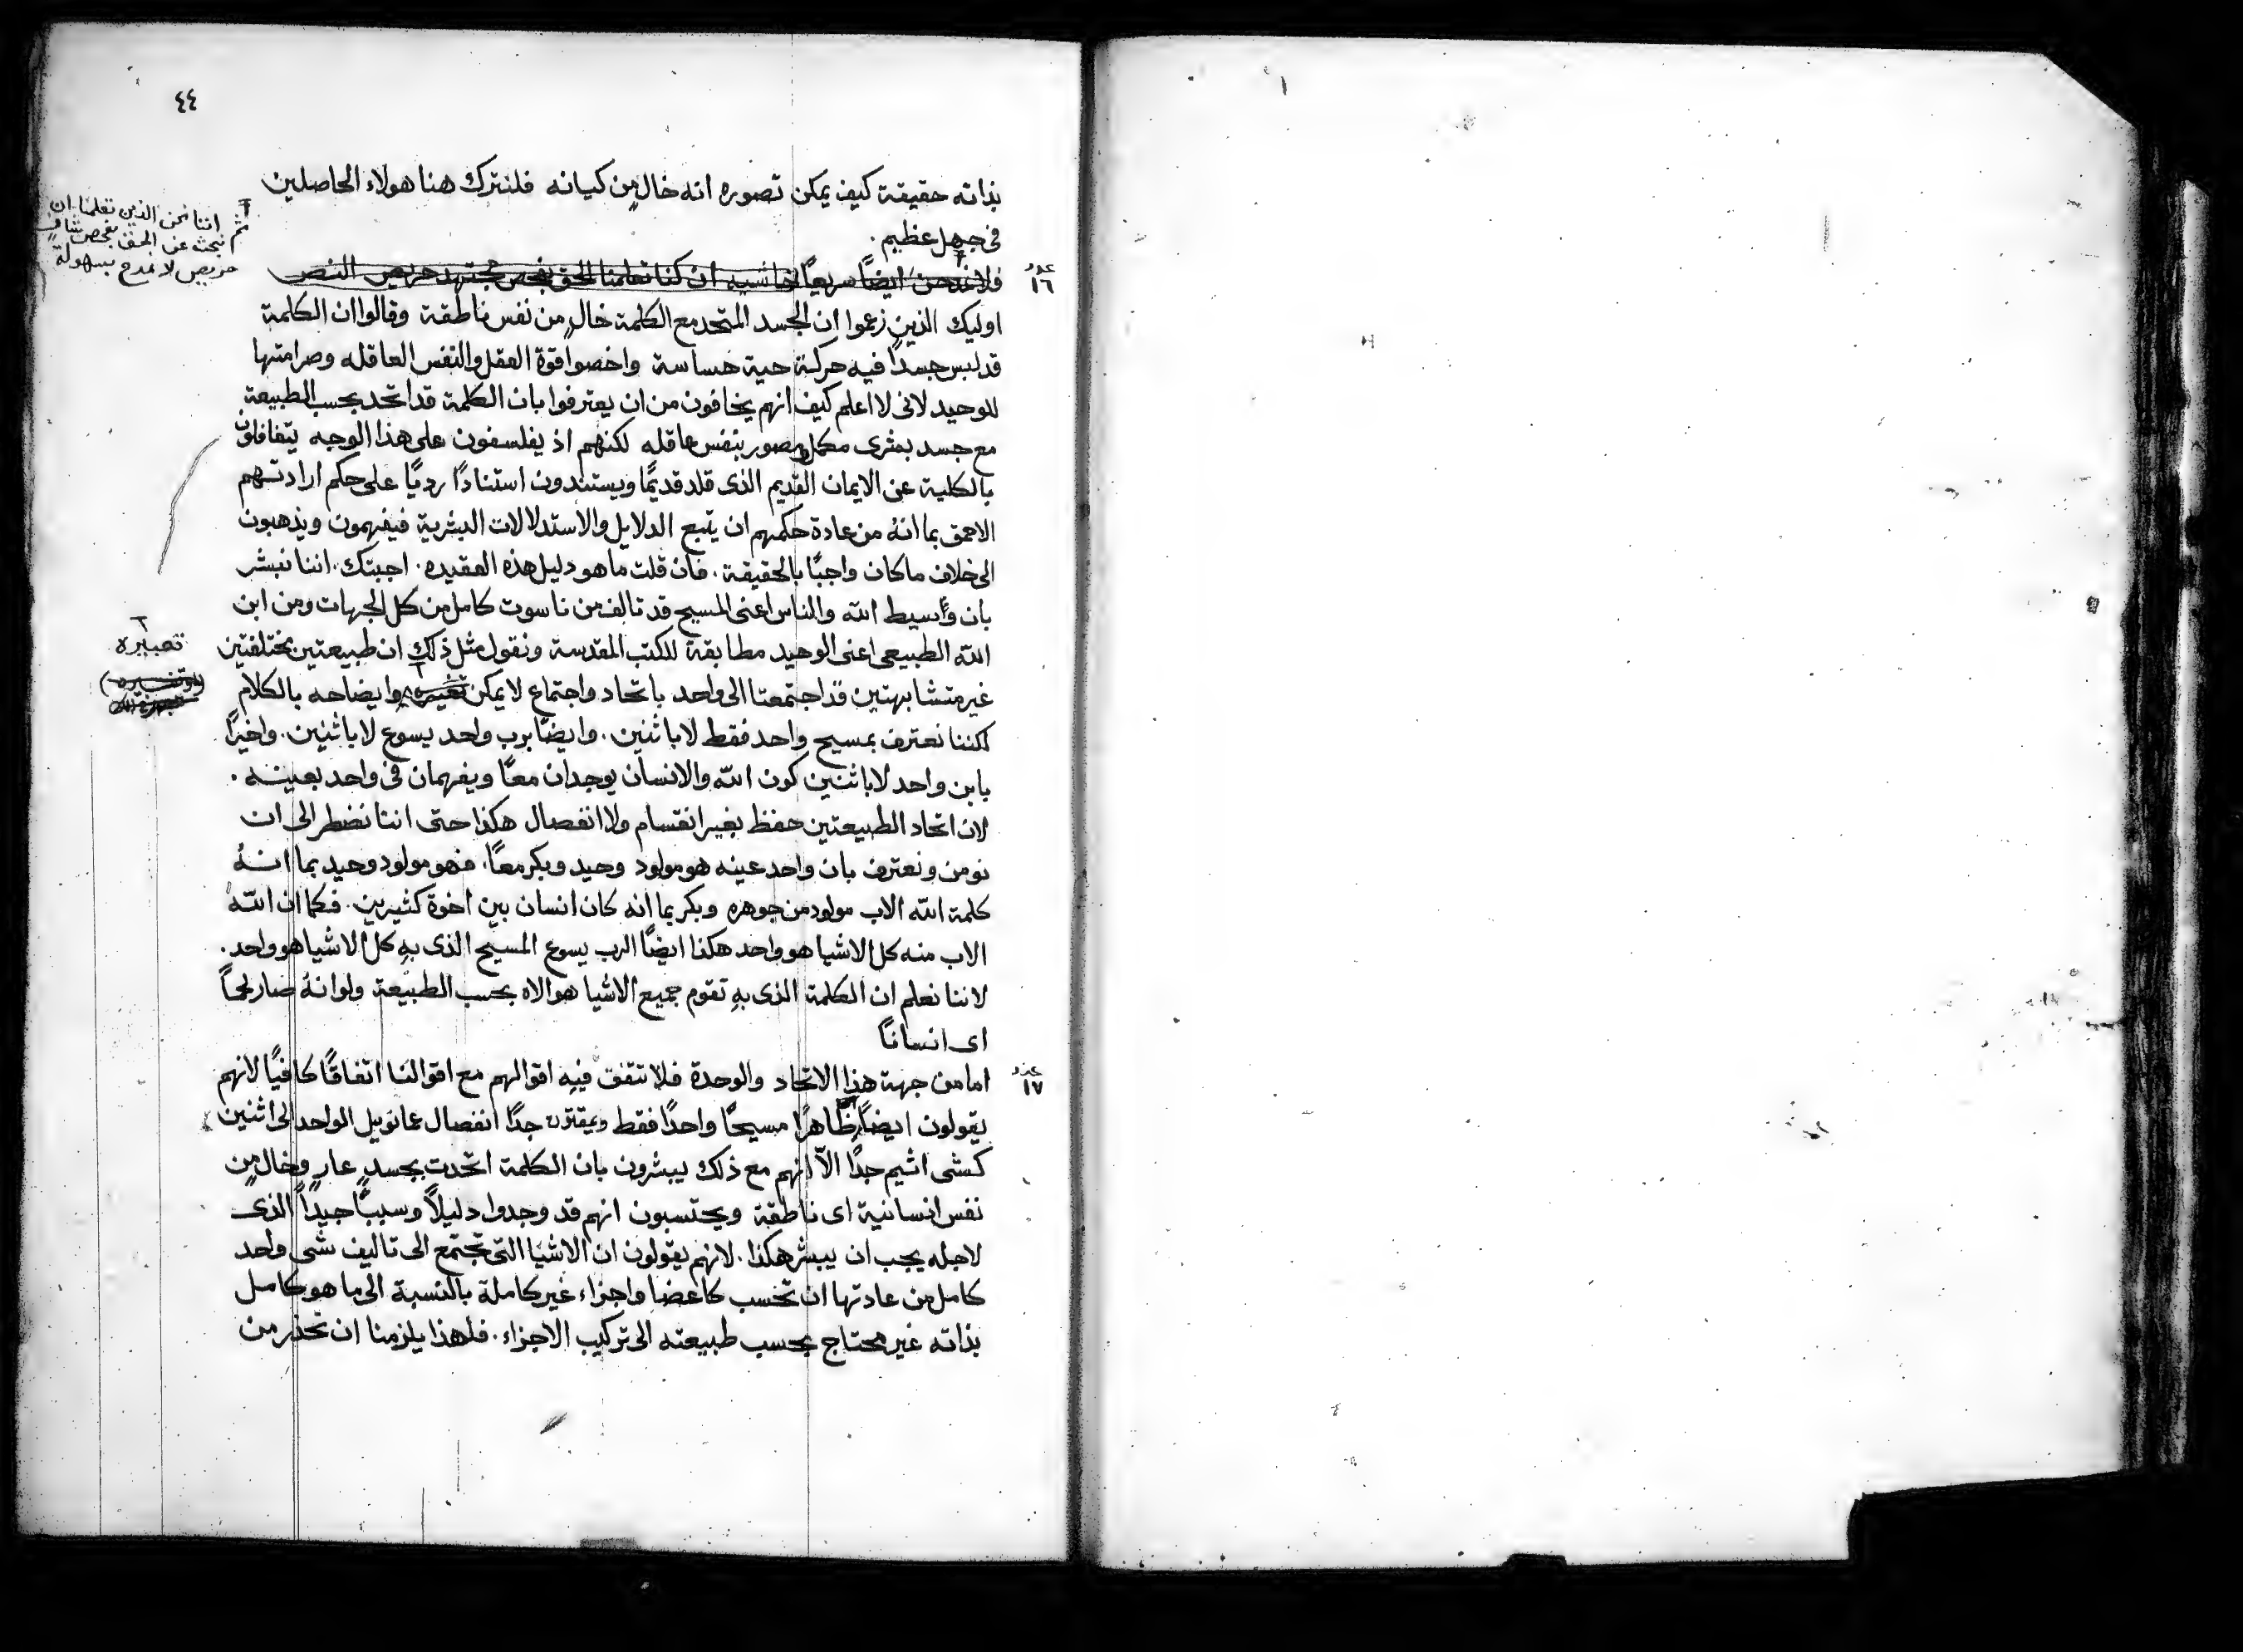 ٤٤
بذاته حقيقة كيف يمكن تصوره انه خالٍ من كيانه فلنترك هنا هولاء الحاصلين
فى جهل عظيم.
ثم اننا نحن الذين تعلمنا ان
نبحث عن الحق بفحص شافٍ
حريص لا نمدح بسهولة
عدد
١٦
فلا نمدحن ايضًا سريعًا ان كنا تعلمنا الحق بفحص مجتهد حريص النص
اوليك الذين زعموا ان الجسد المتحد مع الكلمة خالٍ من نفس ناطقة وقالوا ان الكلمة
قد لبس جسدًا فيه حركة حية حساسة واخصوا قوة العقل والنفس العاقله وصرامتها
للوحيد لانى لا اعلم كيف انهم يخافون من ان يعترفوا بان الكلمة قد اتحد بحسب الطبيعة
مع جسد بشرى مكمل ومصور بنفس عاقله لكنهم اذ يفلسفون على هذا الوجه يتغافلون
بالكلية عن الايمان القديم الذى قلد قديمًا ويستندون استنادًا رديًا على حكم ارادتهم
الاحمق بما انهُ من عادة حكمهم ان يتبع الدلايل والاستدلالات البشرية فيفهمون ويذهبون
الى خلاف ما كان واجبًا بالحقيقة. فان قلت ما هو دليل هذه العقيده. اجبتك. اننا نبشر
بان وسيط الله والناس اعنى المسيح قد تالف من ناسوت كامل من كل الجهات ومن ابن
الله الطبيعى اعنى الوحيد مطابقة للكتب المقدسة ونقول مثل ذلك ان طبيعتين مختلفتين
تعبيره
غير متشابهتين قد اجتمعتا الى واحد باتحاد واجتماع لا يمكن وايضاحه بالكلام
لكننا نعترف بمسيح واحد فقط لا باثنين. وايضًا برب واحد يسوع لا باثنين. واخيرًا
بابن واحد لا باثنين كون الله والانسان يوجدان معًا ويفهمان فى واحد بعينه.
لان اتحاد الطبيعتين حفظ بغير انقسام ولا انفصال هكذا حتى اننا نضطر الى ان
نومن ونعترف بان واحد عينه هو مولود وحيد وبكر معًا. فهو مولود وحيد بما انهُ
كلمة الله الاب مولود من جوهره وبكر بما انه كان انسان بين اخوة كثيرين. فكما ان الله
الاب منه كل الاشيا هو واحد هكذا ايضًا الرب يسوع المسيح الذى بهِ كل الاشيا هو واحد.
لاننا نعلم ان الكلمة الذى بهِ تقوم جميع الاشيا هو الاه بحسب الطبيعة ولو انهُ صار لحمًا
اى انسانًا
عدد
١٧
اما من جهة هذا الاتحاد والوحدة فلا تتفق فيهِ اقوالهم مع اقوالنا اتفاقًا كافيًا لانهم
يقولون ايضًا ظاهرًا مسيحًا واحدًا فقط ويمقتون جدًا انفصال عمانوييل الواحد الى اثنين
كشى اثيم جدًا الّا انهم مع ذلك يبشرون بان الكلمة اتحدت بجسدٍ عارٍ وخالٍ من
نفس انسانية اى ناطقة ويحتسبون انهم قد وجدوا دليلًا وسببًا جيدًا الذى
لاجله يجب ان يبشر هكذا. لانهم يقولون ان الاشيا التى تجتمع الى تاليف شى واحد
كامل من عادتها ان تحسب كاعضا واجزاء غير كاملة بالنسبة الى ما هو كامل
بذاته غير محتاج بحسب طبيعته الى تركيب الاجزاء. فلهذا يلزمنا ان نحذر من